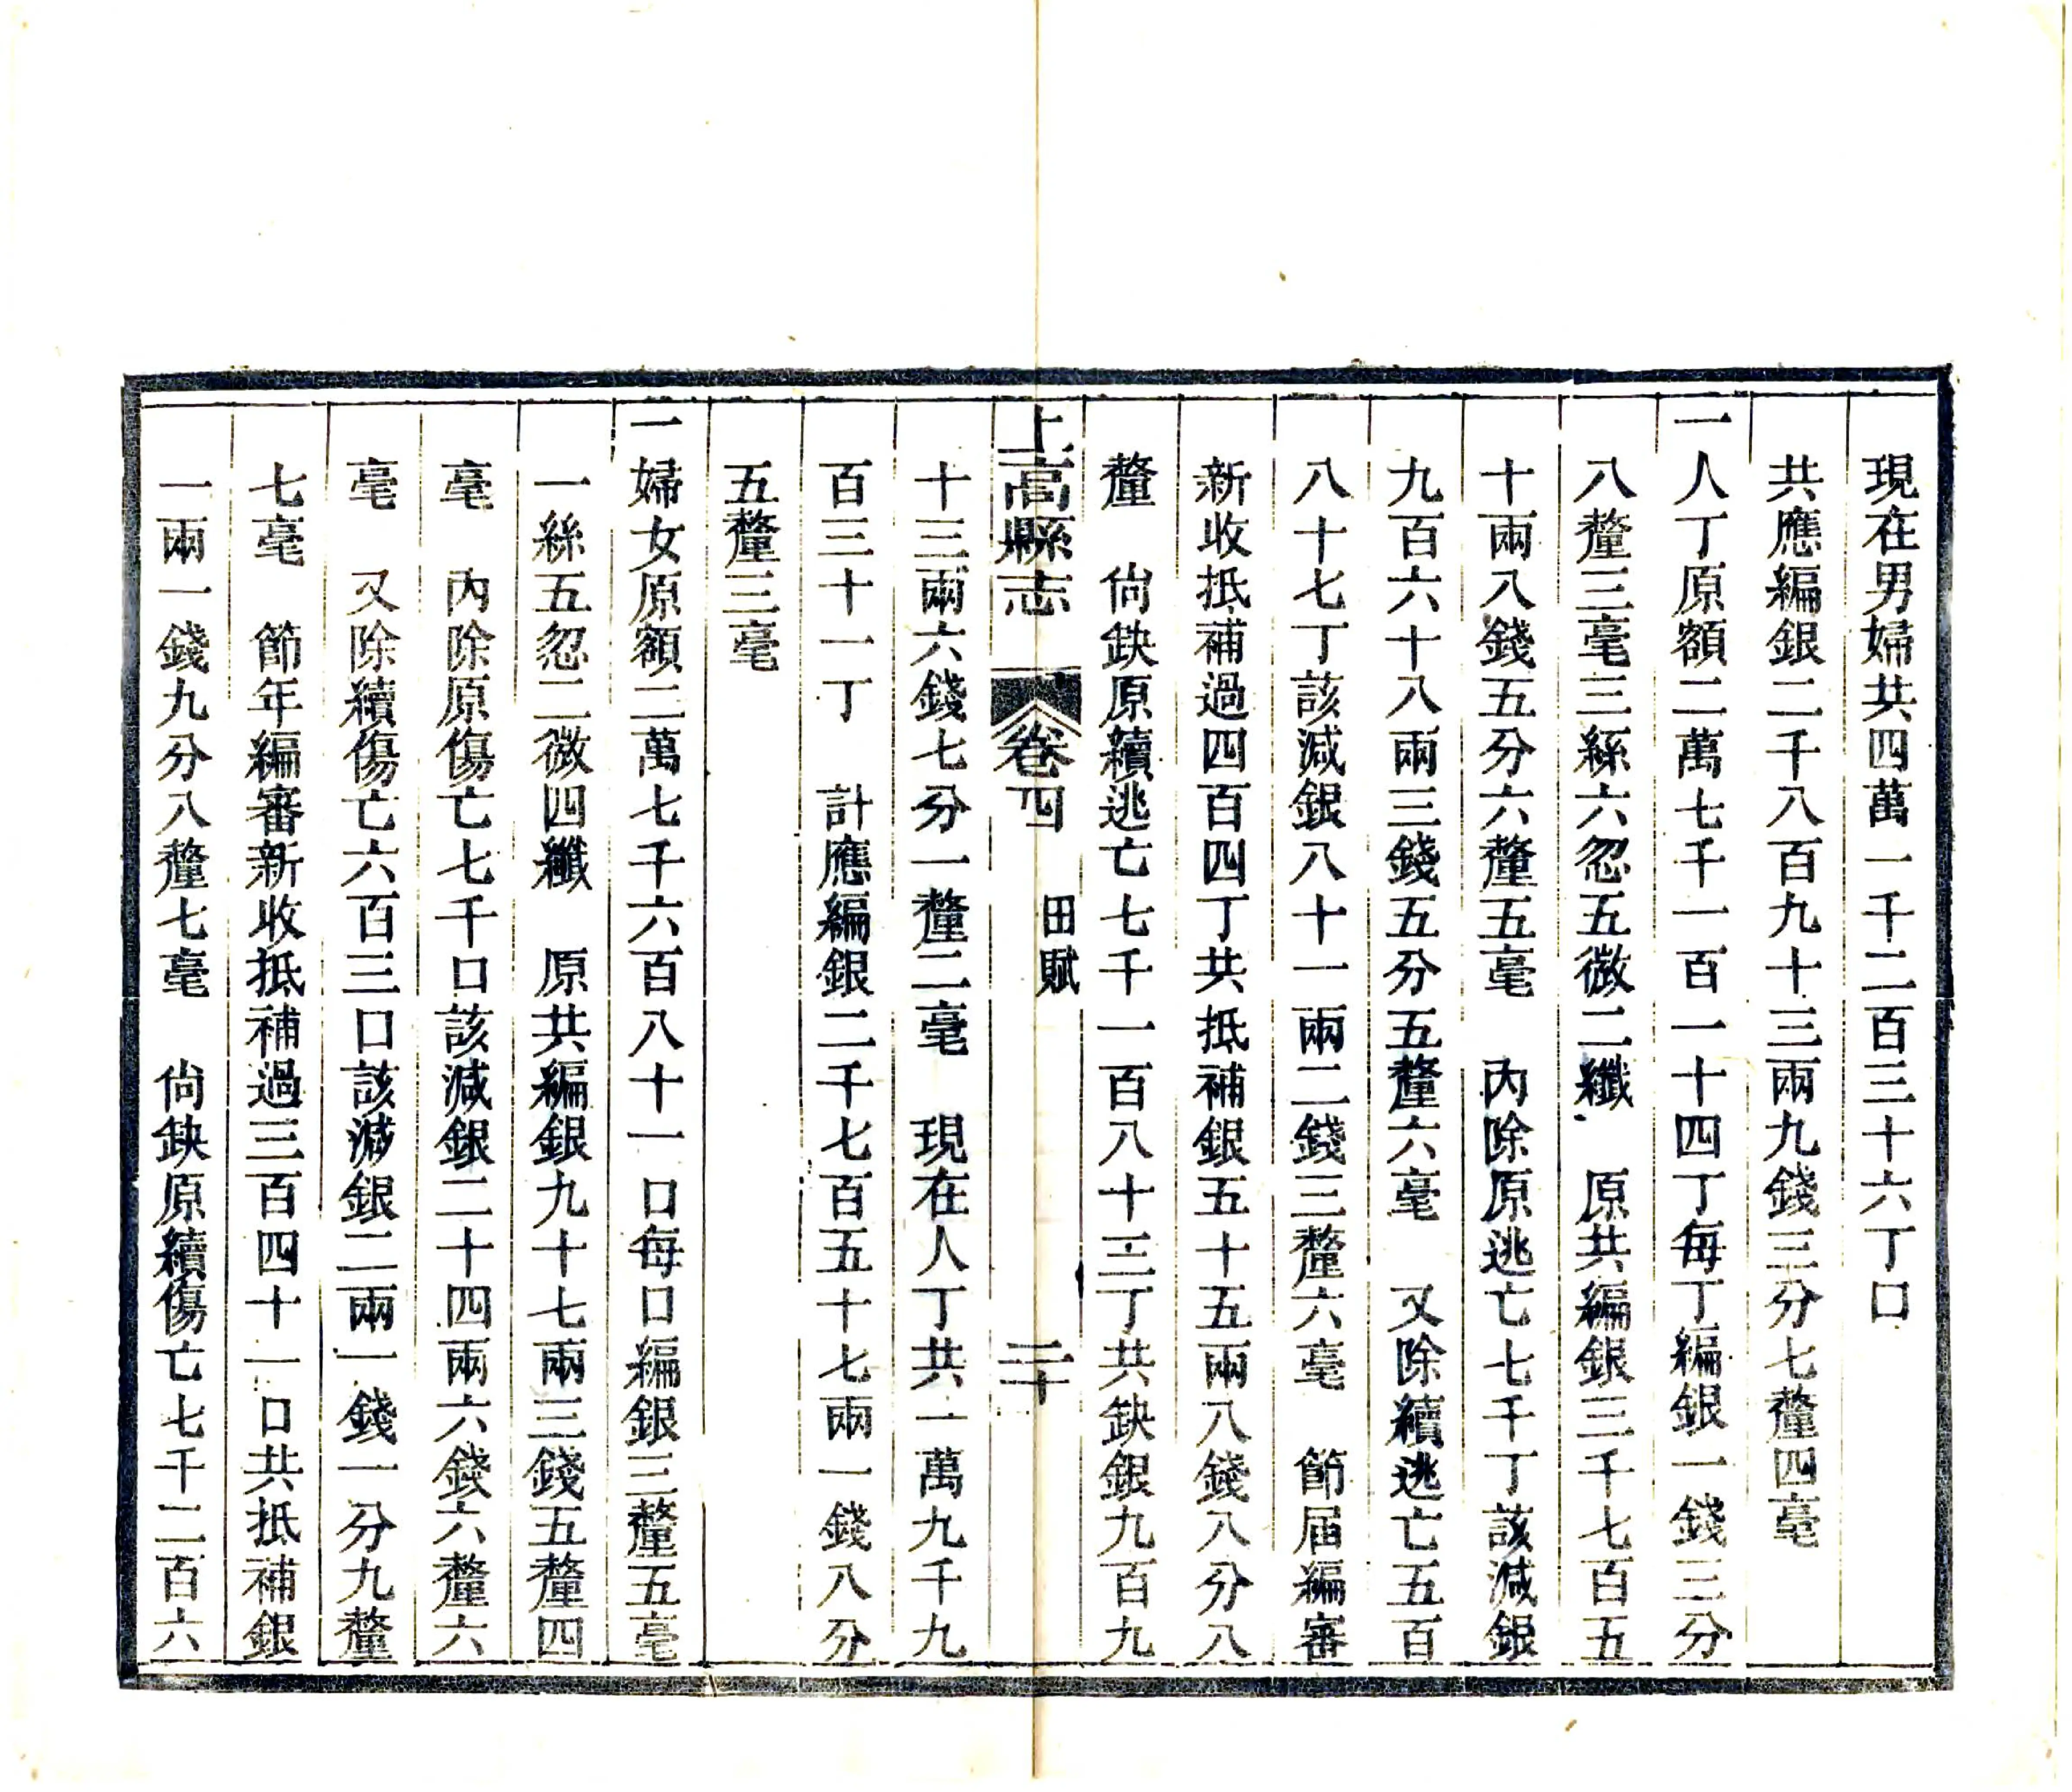 現在男婦共四萬一千二百三十六丁口
共應編銀二千八百九十三兩九錢三分七釐四毫
一人丁原額二萬七千一百一十四丁每丁編銀一錢三分
八釐三毫三絲六忽五微二纖　原共編銀三千七百五
十兩八錢五分六釐五毫　內除原逃亡七千丁該減銀
九百六十八兩三錢五分五釐六毫　又除續逃亡五百
八十七丁該減銀八十一兩二錢三釐六毫　節届編審
新收抵補過四百四丁共抵補銀五十五兩八錢八分八
釐　尙缺原續逃亡七千一百八十三丁共缺銀九百九
上高縣志　卷四　田賦　二十
十三兩六錢七分一釐二毫　現在人丁共一萬九千九
百三十一丁　計應編銀二千七百五十七兩一錢八分
五釐三毫
一婦女原額二萬七千六百八十一口每口編銀三釐五毫
一絲五忽二微四纖　原共編銀九十七兩三錢五釐四
毫　內除原傷亡七千口該減銀二十四兩六錢六釐六
毫　又除續傷亡六百三口該減銀二兩一錢一分九釐
七毫　節年編審新收抵補過三百四十一口共抵補銀
一兩一錢九分八釐七毫　尙缺原續傷亡七千二百六